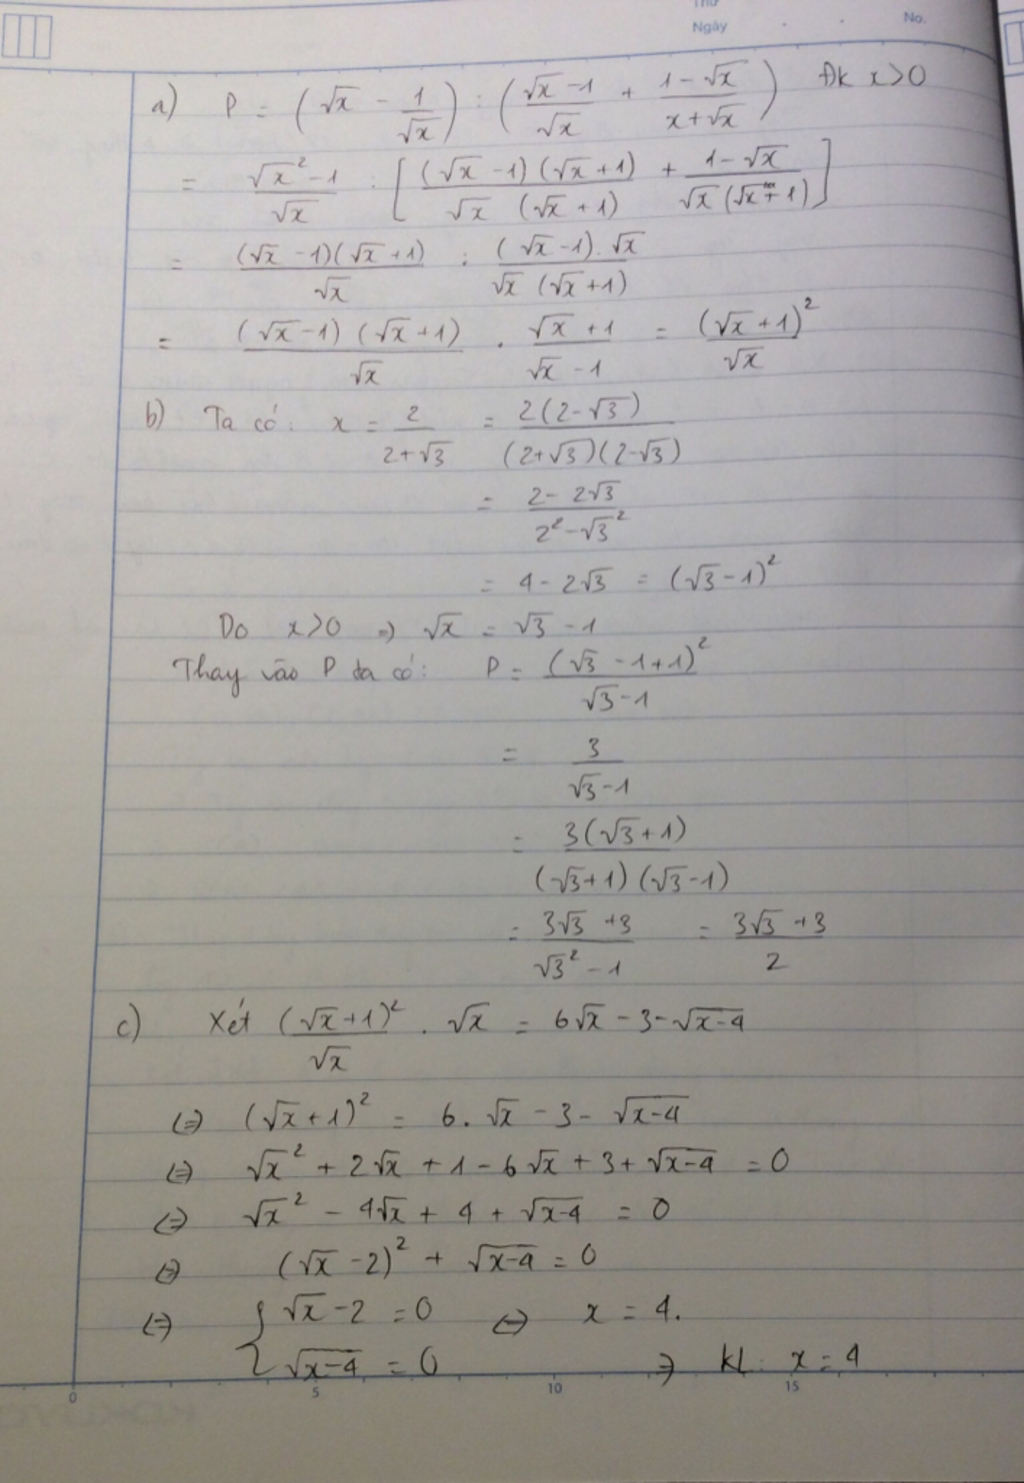 Thứ
Ngày . . No.
a) P = (√x - 1/√x) : ((√x - 1)/√x + (1 - √x)/(x + √x)) Đk x>0
= (√x² - 1)/√x : [(√x - 1)(√x + 1)/(√x (√x + 1)) + (1 - √x)/(√x(√x + 1))]
= (√x - 1)(√x + 1)/√x : (√x - 1).√x/(√x (√x + 1))
= (√x - 1)(√x + 1)/√x . (√x + 1)/(√x - 1) = (√x + 1)²/√x
b) Ta có: x = 2/(2+√3) = 2(2-√3)/((2+√3)(2-√3))
= (2 - 2√3)/(2² - √3²)
= 4 - 2√3 = (√3 - 1)²
Do x>0 => √x = √3 - 1
Thay vào P ta có: P = (√3 - 1 + 1)²/(√3 - 1)
= 3/(√3 - 1)
= 3(√3 + 1)/((√3 + 1)(√3 - 1))
= (3√3 + 3)/(√3² - 1) = (3√3 + 3)/2
c) Xét (√x + 1)²/√x . √x = 6√x - 3 - √(x-4)
<=> (√x + 1)² = 6.√x - 3 - √(x-4)
<=> √x² + 2√x + 1 - 6√x + 3 + √(x-4) = 0
<=> √x² - 4√x + 4 + √(x-4) = 0
<=> (√x - 2)² + √(x-4) = 0
<=> { √x - 2 = 0 <=> x = 4.
√(x-4) = 0 => kl: x = 4
0 5 10 15